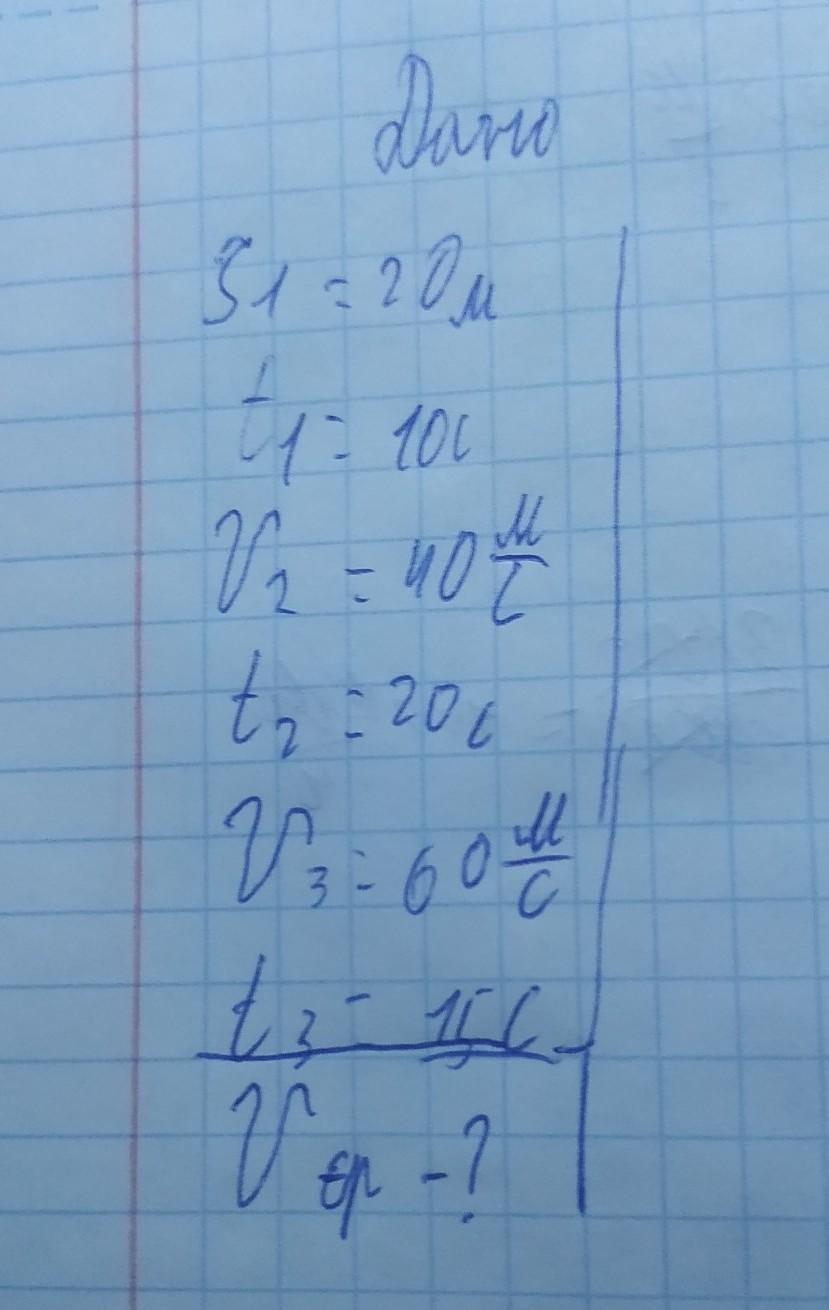 Дано
S1 = 20м
t1 = 10с
V2 = 40 м/с
t2 = 20с
V3 = 60 м/с
t3 = 15с
Vср - ?